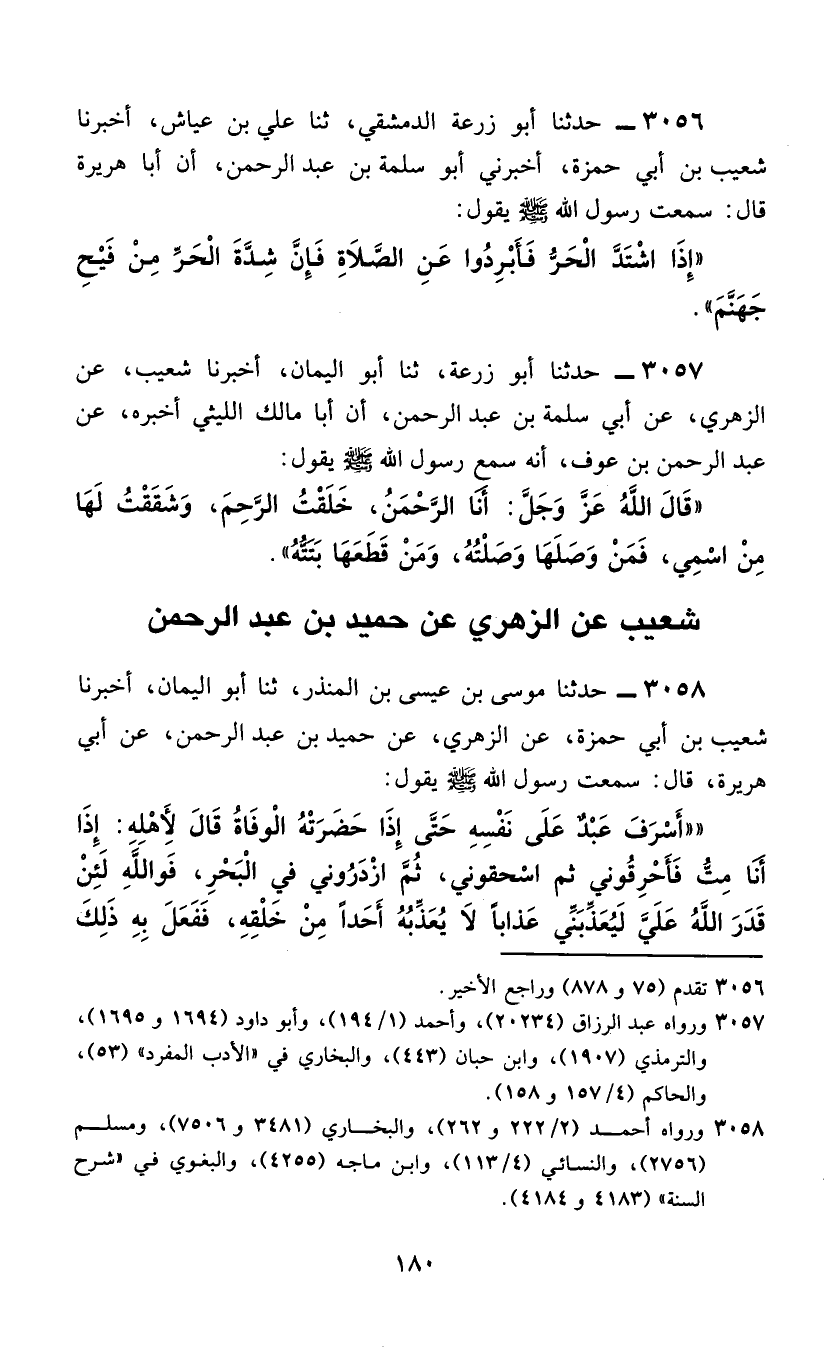 ٣٠٥٦ ـ حدثنا أبو زرعة الدمشقي، ثنا علي بن عياش، أخبرنا
شعيب بن أبي حمزة، أخبرني أبو سلمة بن عبد الرحمن، أن أبا هريرة
قال: سمعت رسول الله ﷺ يقول:
«إِذَا اشْتَدَّ الْحَرُّ فَأَبْرِدُوا عَنِ الصَّلَاةِ فَإِنَّ شِدَّةَ الْحَرِّ مِنْ فَيْحِ
جَهَنَّمَ».
٣٠٥٧ ـ حدثنا أبو زرعة، ثنا أبو اليمان، أخبرنا شعيب، عن
الزهري، عن أبي سلمة بن عبد الرحمن، أن أبا مالك الليثي أخبره، عن
عبد الرحمن بن عوف، أنه سمع رسول الله ﷺ يقول:
«قَالَ اللَّهُ عَزَّ وَجَلَّ: أَنَا الرَّحْمَنُ، خَلَقْتُ الرَّحِمَ، وَشَقَقْتُ لَهَا
مِنْ اسْمِي، فَمَنْ وَصَلَهَا وَصَلْتُهُ، وَمَنْ قَطَعَهَا بَتَتُّهُ».
شعيب عن الزهري عن حميد بن عبد الرحمن
٣٠٥٨ ـ حدثنا موسى بن عيسى بن المنذر، ثنا أبو اليمان، أخبرنا
شعيب بن أبي حمزة، عن الزهري، عن حميد بن عبد الرحمن، عن أبي
هريرة، قال: سمعت رسول الله ﷺ يقول:
««أَسْرَفَ عَبْدٌ عَلَى نَفْسِهِ حَتَّى إِذَا حَضَرَتْهُ الْوفَاةُ قَالَ لِأَهْلِهِ: إِذَا
أَنَا مِتُّ فَأَحْرِقُوني ثم اسْحقوني، ثُمَّ ازْدَرُوني في الْبَحْرِ، فَواللَّهِ لَئِنْ
قَدَرَ اللَّهُ عَلَيَّ لَيُعَذِّبَنِّي عَذاباً لَا يُعَذِّبُهُ أَحَداً مِنْ خَلْقِهِ، فَفَعَلَ بِهِ ذَلِكَ
٣٠٥٦ تقدم (٧٥ و ٨٧٨) وراجع الأخير.
٣٠٥٧ ورواه عبد الرزاق (٢٠٢٣٤)، وأحمد (١/ ١٩٤)، وأبو داود (١٦٩٤ و ١٦٩٥)،
والترمذي (١٩٠٧)، وابن حبان (٤٤٣)، والبخاري في «الأدب المفرد» (٥٣)،
والحاكم (٤/ ١٥٧ و ١٥٨).
٣٠٥٨ ورواه أحمـــد (٢/ ٢٢٢ و ٢٦٢)، والبخـــاري (٣٤٨١ و ٧٥٠٦)، ومسلـــم
(٢٧٥٦)، والنسائي (٤/ ١١٣)، وابن ماجه (٤٢٥٥)، والبغوي في «شرح
السنة» (٤١٨٣ و ٤١٨٤).
١٨٠